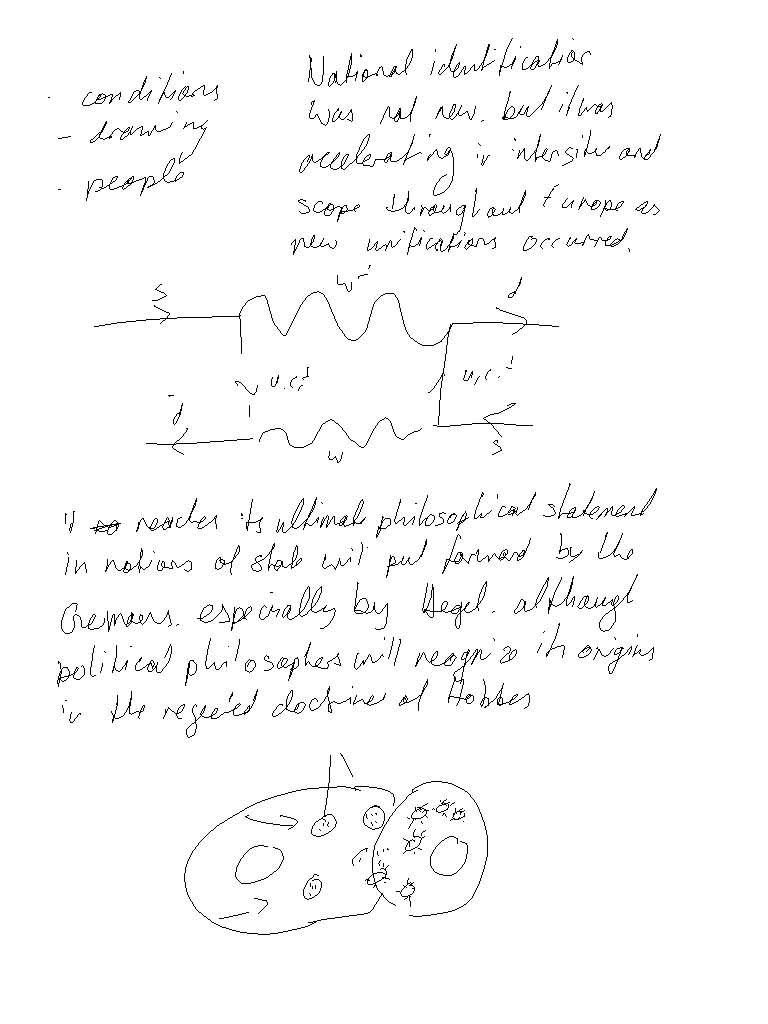 - conditions
- drawing
- people
National identification
was not new. but it was
accelerating in intensite and
scope throughout Europe as
new unifications occurred.
s
W
d
u,c,t
u,c,t
d
W
s
reaches its ultimate philosophical statement
in notions of state will put forward by the
Gremaers. especially by Hegel. although
political philosophers will recognize its origins
in the rejected doctrines of Hobbes